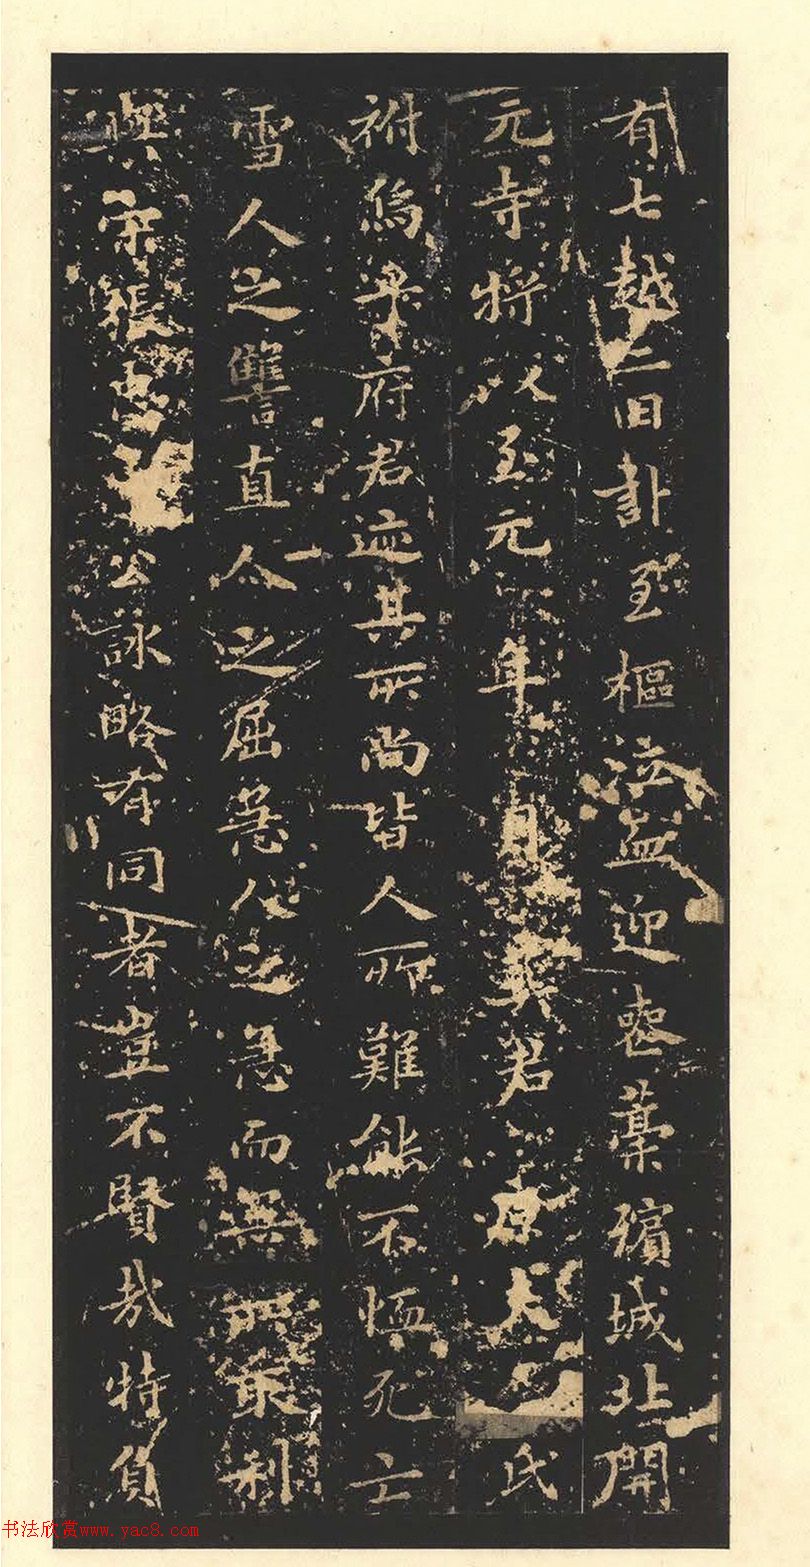 有七越二日訃至樞泣血迎喪藁殯城北開
元寺將以至元 年 月 葬君 原夫人 氏
祔為梁府君迹其所尚皆人所難能不恤死亡
雪人之讐直人之屈急人之急而無 策利
與宋張 公詠略有同者豈不賢哉特負
书法欣赏www.yac8.com